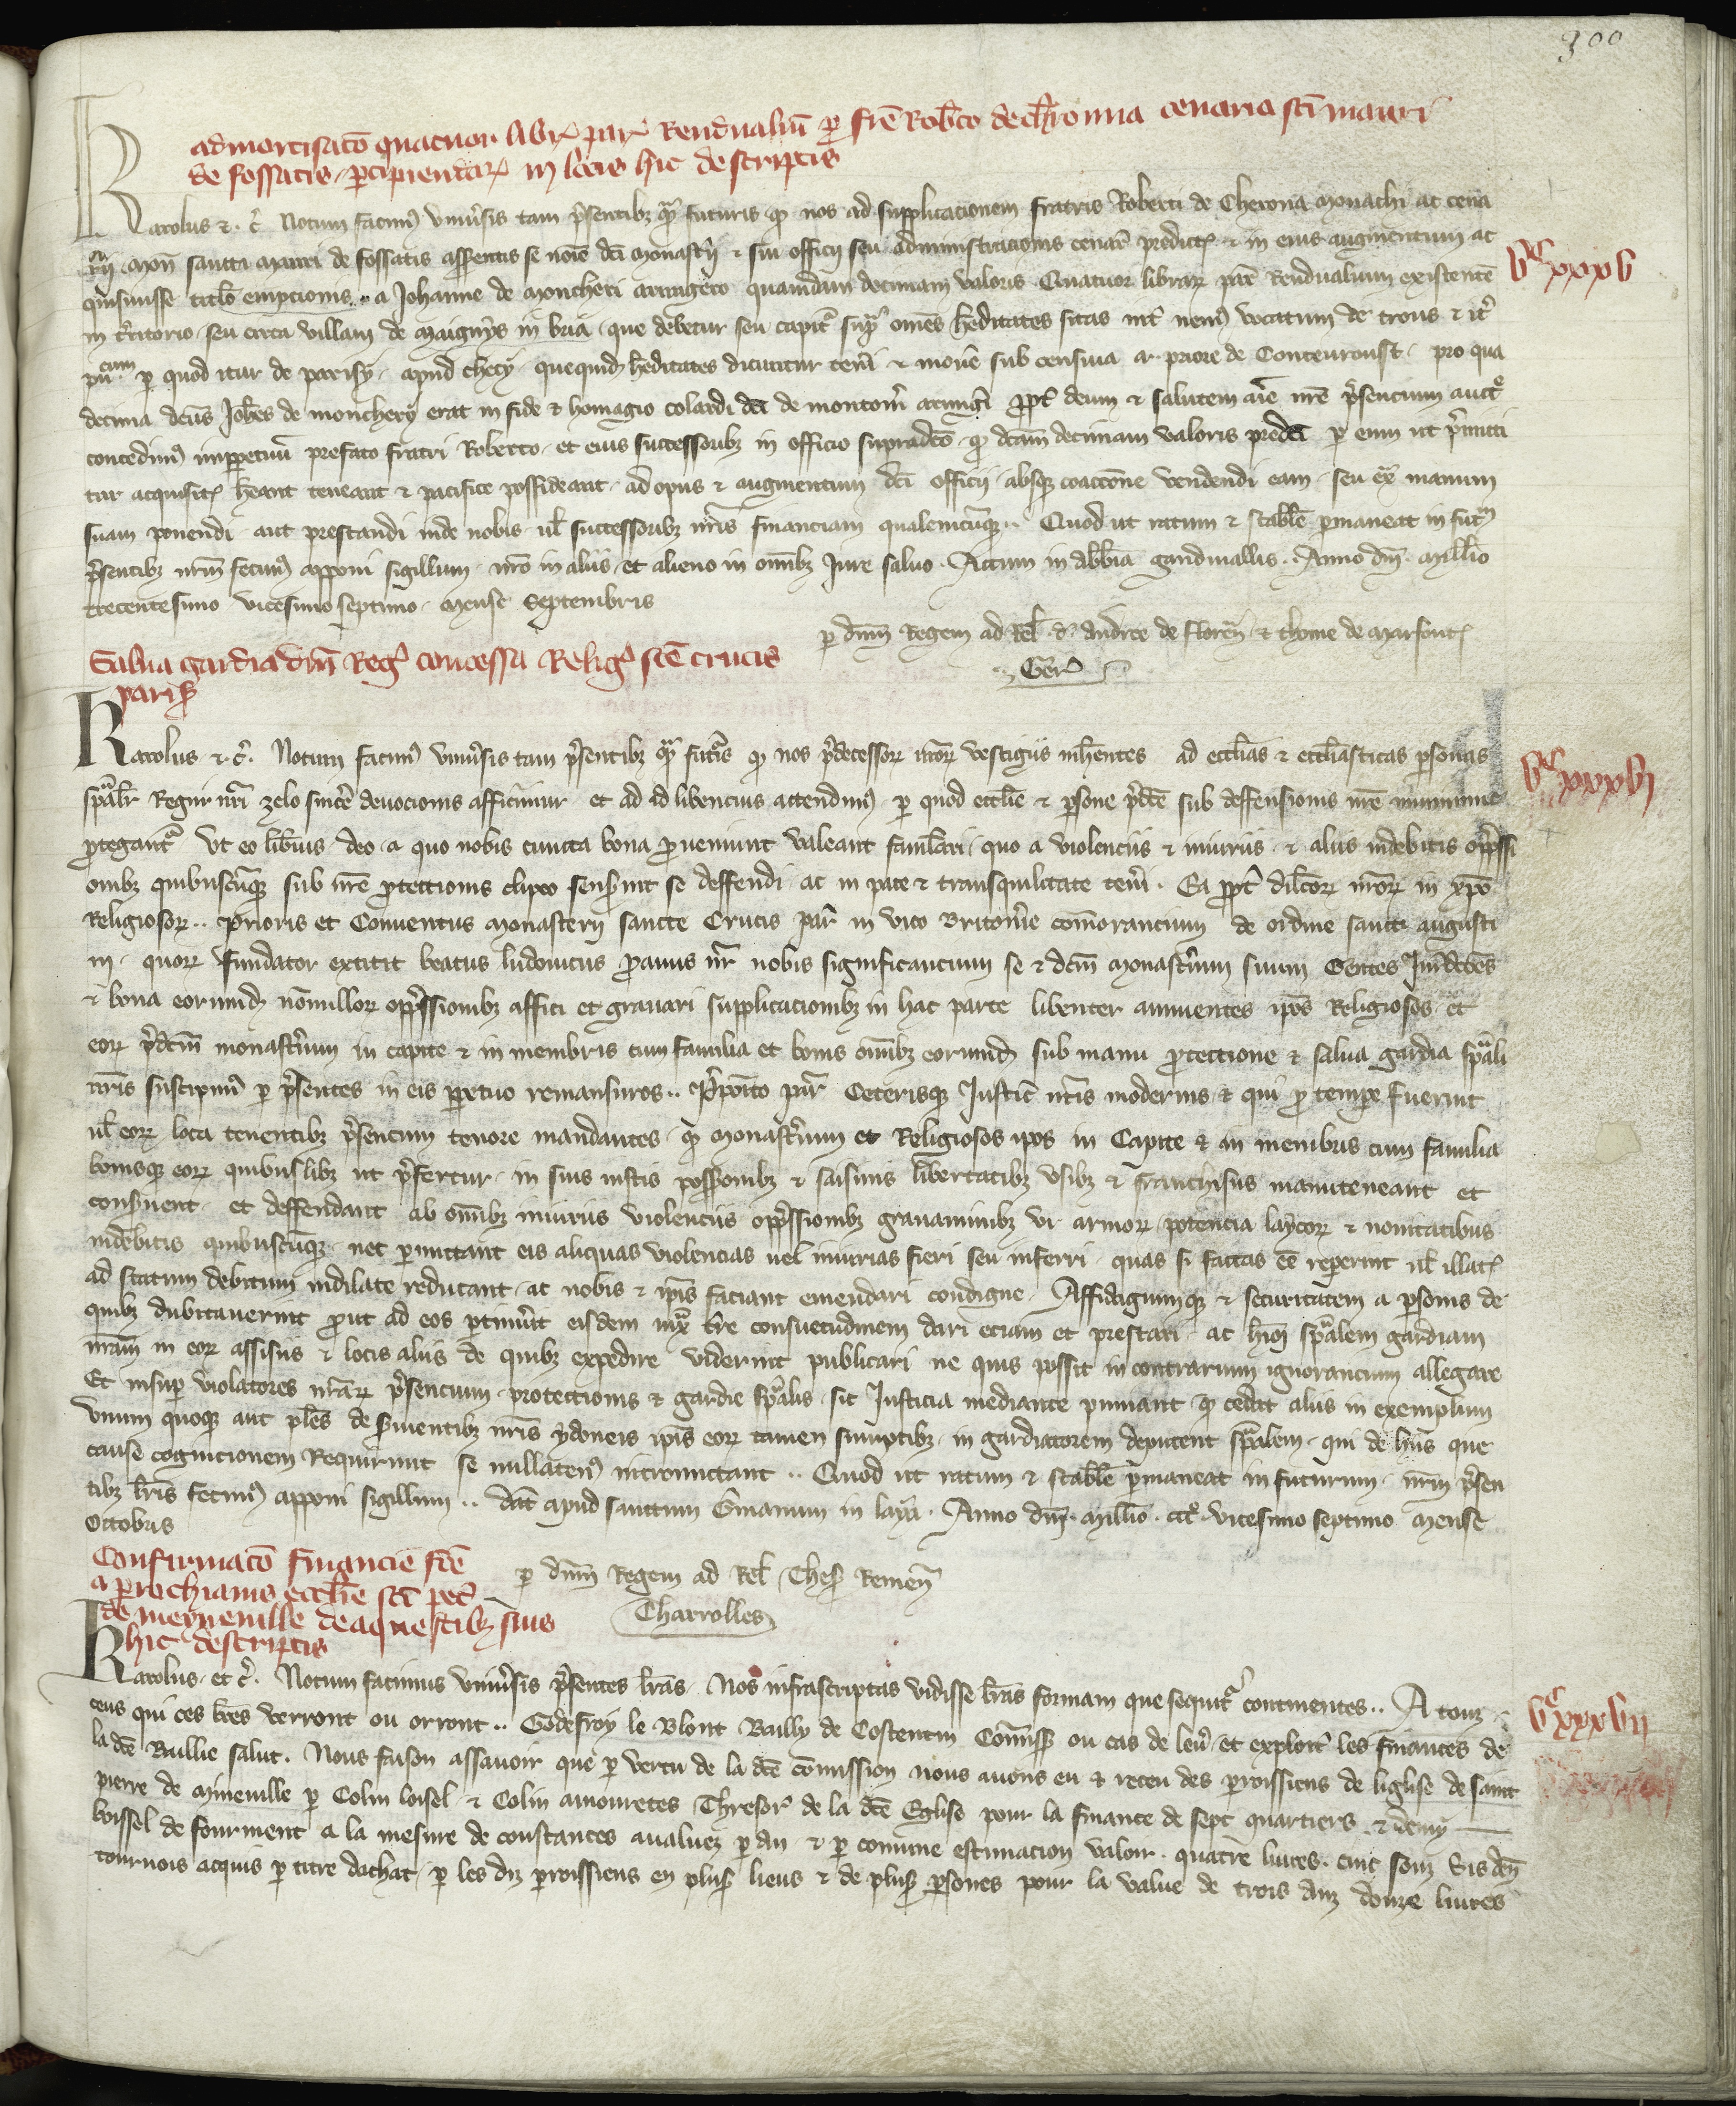 300
admortisatō quatuor libr. par. Rendualiū p frē Robto de Cheronna cenario sci mauri
de fossatis. pcipiendar. in locis hic descriptis
Karolus &. c. Notum facim9 vniusis tam psentibz qm futuris q nos ad supplicacionem fratris Roberti de Cherona monachi ac cena
rij mon sancti Mauri de fossatis asserentis se noie dci monastij & sui officij seu administracionis cenar predict. & in eius augmentum ac
quisiuisse titlo empcionis .. a Johanne de Moncheri armigero quamdam decimam valoris Quatuor librar par Rendualium existente
in tritorio seu circa villam de Maignys in bria. que debetur seu capit sup omes heditates sitas int nem9 vocatum de trous & it
cum
p quod itur de parisy. apud checy. quequid heditates dicuntur teneri & mouē sub censiua a priore de Conteuroust. pro qua
decima dcus Johes de monchery erat in fide & homagio colardi dci de montom armigi ppt deum & salutem aīe nre psencium auctē
concedim9 imppetuū prefato fratri Roberto. et eius successoribz in officio supradco. q dcam decimam valoris predci p eum ut pmitti
tur acquisit. heant teneant & pacifice possideant. ad opus & augmentum dci officij. absqz coaccone vendendi eam. seu ext manum
suam ponendi. aut prestandi inde nobis ul successoribz nris financiam qualemcuqz.. Quod ut ratum & stabile pmaneat in fut
psentibz nrm fecim9 apponi sigillum. nro in aliis et alieno in omibz Jure saluo. Actum in abbia gardi vallis. Anno dni. Millio
trecentesimo vicesimo septimo. mense Septembris
p dnm Regem ad Rel. d. Andree de floren & thome de Marfont.
Ger
vc xxxv
Salua gardia dni Reg. concessa Relig. sce crucis
paris
Karolus &. c. Notum facim9 vniusis tam psentibz qm futis q nos pdecessor nror vestigiis inhentes ad ecclias & eccliasticas psonas
spaliт Regni nri zelo sincē deuocionis afficimur et ad id libencius attendim9 p quod ecclie & psone pdce sub deffensionis nre munimine
ptegant. Vt eo libius deo. a quo nobis cuncta bona proueniunt valeant famlari. quo a violenciis & iniuriis. & aliis indebitis oppssi
onibz quibuscuqz sub nre ptectionis clipeo senserint se deffendi ac in pace & transquilitate teneri. Ea ppt dilcor nror in xpo
Religiosor.. Prioris et Conuentus Monasterij sancte Crucis par in vico Britonie comorancium de ordine sancti augusti
ni. quor fundator extitit beatus ludouicus proauus nr nobis significancium se & dcm Monastium suum Gentes
& bona eorumd nonullor oppssionibz affici et grauari supplicacionibz in hac parte libenter annuentes ipos Religiosos et
eor pdcm monastium in capite & in membris cum familia et bonis omibz eorumd sub manu protectione & salua gardia spali
nris suscipim9 p psentes in eis ppetuo remansuros.. Pposito par Ceterisqz Justic nris modernis & qui p tempe fuerint
ul eor loca tenentibz psencium tenore mandantes. q monastium et Religiosos ipos in Capite & in membris cum familia
bonisqz eor quibuslibz ut pfertur. in suis iustis possionibz & saisinis libertatibz vsibz & franchisiis manuteneant et
conseruent. et deffendant ab omibz iniuriis violenciis oppssionibz grauaminibz vi armor potencia laycor & nouitatibus
indebitis quibuscuqz. nec pmittant eis aliquas violencias uel iniurias fieri seu inferri. quas si factas eē reperint ul illat.
ad statum debitum indilate reducant. ac nobis & ipis faciant emendari condigne. Assidagiumqz & securitatem a psonis de
quibz dubitauerint prout ad eos ptinuit eisdem iux tre consuetudinem dari eciam et prestari. ac hmoi spalem gardiam
nram in eor assisiis & locis aliis de quibz expedire viderint publicari ne quis possit in contrarium ignorancium allegare
Et insup violatores nrar psencium. protectionis & gardie spalis. sic Justicia mediante puniant. q cedat aliis in exemplum
Vnum quoqz aut ples de seruientibz nris ydoneis ipis eor tamen sumptibz. in gardiatorem deputent spalem. qui de hiis que
cause cognicionem Requirunt se nullaten9 intromittant.. Quod ut ratum & stabile pmaneat in futurum. nrm psen
tibz lris fecim9 apponi sigillum.. Dat apud sanctum Gmanum in laya. Anno dni. Millio. ccc. vicesimo septimo mense
Octobris
p dnm Regem ad Rel. Thes Remen
Charrolles
vc xxxvi
Confirmacō financie fcē
a prochianis ecclie sci pet
de meneuille de aquestibz suis
hic descriptis
Karolus. et c. Notum facimus vniusis psentes lras. Nos infrascriptas vidisse lras formam que sequit continentes.. A touz
ceus qui ces lres verront ou orront.. Godefroy le Blont Bailly de Costentin Comiss ou cas de leu et exploit les finances de
la dce Baillie salut. Nous faison assauoir que p vertu de la dce comission nous auons eu & receu des proissiens de liglise de saint
pierre de Mineuille p Colin loisel & Colin amouretes Thresor de la dce Eglise pour la finance de sept quartiers & demy
boissel de fourment a la mesure de constances aualuez p an & p comune estimacion valoir. quatre liures. cinc souz Sis dn
tournois acquis p titre dachat. p les diz proissiens en plus lieus & de plus psones pour la value de trois anz douze liures
vc xxxvii